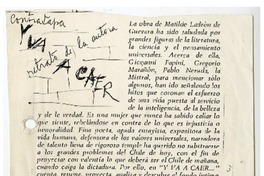 Contratapa
YVA
A CAER
retrato de la autora
La obra de Matilde Ladrón de
Guevara ha sido saludada por
grandes figuras de la literatura,
la ciencia y el pensamiento
universales. Acerca de ella,
Giovanni Papini, Gregorio
Marañón, Pablo Neruda, la
Mistral, para mencionar sólo
algunos, han ido señalando los
hitos que coronan el esfuerzo
de una vida puesta al servicio
de la inteligencia, de la belleza
y de la verdad. Es una mujer que nunca ha sabido callar el
grito, rebelándose en contra de lo que es injusticia o
inmoralidad. Fina poeta, aguda ensayista, expositora de la
vida humana, defensora de los valores universales, narradora
de talento lleva de rigurosa temple ha querido aproximarse
a los grandes problemas del Chile de hoy, con el fin de
proyectar con talento lo que deberá ser el Chile de mañana,
cuando caiga la dictadura. Por ello, en "Y VA A CAER..."